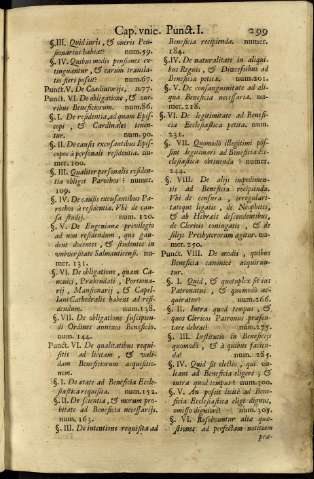 Cap. vnic. Punct. I. 299
§. III. Quid iuris, & oneris Pen-
sionarius habeat? num. 59.
§. IV. Quibus modis pensiones ex-
tinguantur, & earum transla-
tio fieri possit? num. 67.
Punct. V. De Coadiutorijs, n. 77.
Punct. VI. De obligatione, & one-
ribus Beneficiorum. num. 86.
§. I. De residentia, ad quam Epis-
copi, & Cardinales tenen-
tur. num. 90.
§. II. De causis excusantibus Epis-
copos à personali residentia. nu-
mer. 100.
§. III. Qualiter personalis residen-
tia obliget Parochos? numer.
109.
§. IV. De causis excusantibus Pa-
rochos à residentia. Vbi de cau-
sa studij. num. 120.
§. V. De Eugeniana privilegio
ad non residendum, quo gau-
dent docentes, & studentes in
vniversitate Salmanticensi. nu-
mer. 131.
§. VI. De obligatione, quam Ca-
nonici, Præbendati, Portiona-
rij, Mansionarij, & Capel-
lani Cathedrales habent ad resi-
dendum. num. 138.
§. VII. De obligatione suscipien-
di Ordines annexos Beneficio.
num. 144.
Punct. VI. De qualitatibus requi-
sitis ad licitam, & vali-
dam Beneficiorum acquisitio-
nem.
§. I. De ætate ad Beneficia Eccle-
siastica requisita. num. 152.
§. II. De scientia, & morum pro-
bitate ad Beneficia necessarijs.
num. 163.
§. III. De intentione requisita ad
Beneficia recipienda. numer.
184.
§. IV. De naturalitate in aliqui-
bus Regnis, & Diœcesibus ad
Beneficia petita. num. 201.
§. V. De consanguinitate ad ali-
qua Beneficia necessaria. nu-
mer. 218.
§. VI. De legitimitate ad Benefi-
cia Ecclesiastica petita. num.
231.
§. VII. Quomodo illegitimi pos-
sint legitimari ad Beneficia Ec-
clesiastica obtinenda? numer.
244.
§. VIII. De alijs impedimen-
tis ad Beneficia recipienda.
Vbi de censura, irregulari-
tatque ligatis, de Neophytis,
& ab Hebræis descendentibus,
de Clericis coniugatis, & de
filijs Presbyterorum agitur. nu-
mer. 250.
Punct. VIII. De modis, quibus
Beneficia canonicè acquirun-
tur.
§. I. Quid, & quotuplex sit ius
Patronatus, & quomodo ac-
quiratur? num. 266.
§. II. Intra quod tempus, &
quos Clericos Patronus præsen-
tare debeat? num. 275.
§. III. Institutio in Beneficijs
quomodo, & à quibus facien-
da? num. 285.
§. IV. Quid sit electio, qui va-
leant ad Beneficia eligere; &
intra quod tempus? num. 300.
§. V. An possit licitè ad Bene-
ficia Ecclesiastica eligi dignus,
omisso digniori? num. 305.
§. VI. Resolvuntur aliæ quæ-
stiones ad perfectam notitiam
præ-